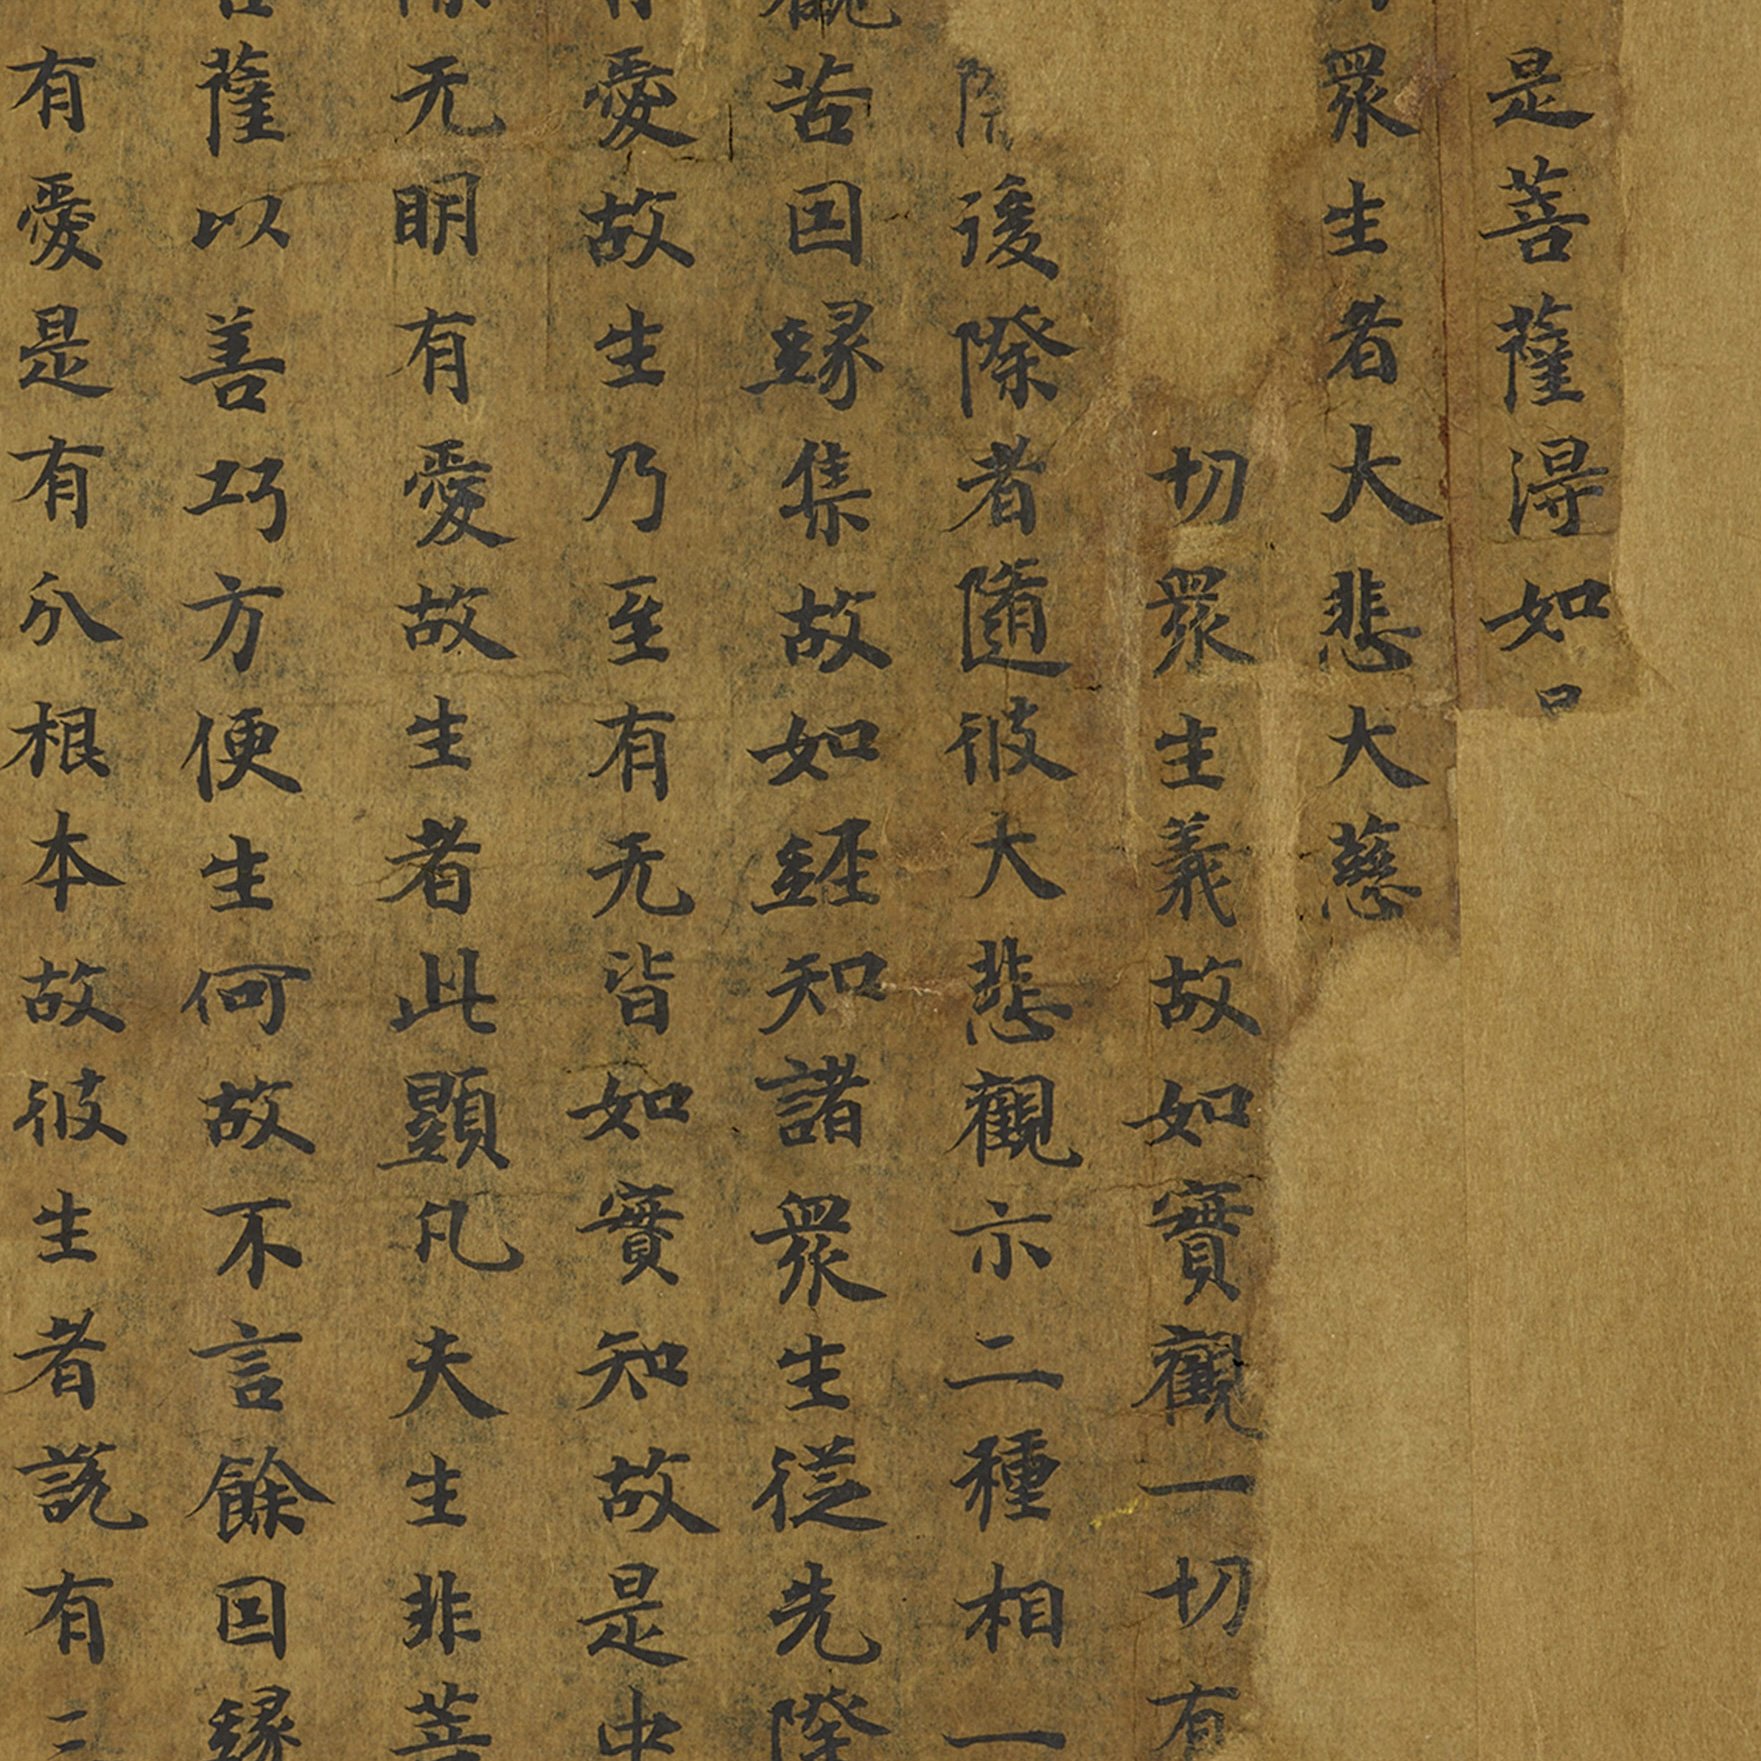 是菩薩淂如
眾生者大悲大慈
切眾生義故如實觀一切有
後際者随彼大悲觀示二種相一
苦因縁集故如經知諸眾生從先際
愛故生乃至有无皆如實知故是中
无明有愛故生者此顯凡夫生非菩
薩以善巧方便生何故不言餘因縁
有愛是有分根本故彼生者說有二